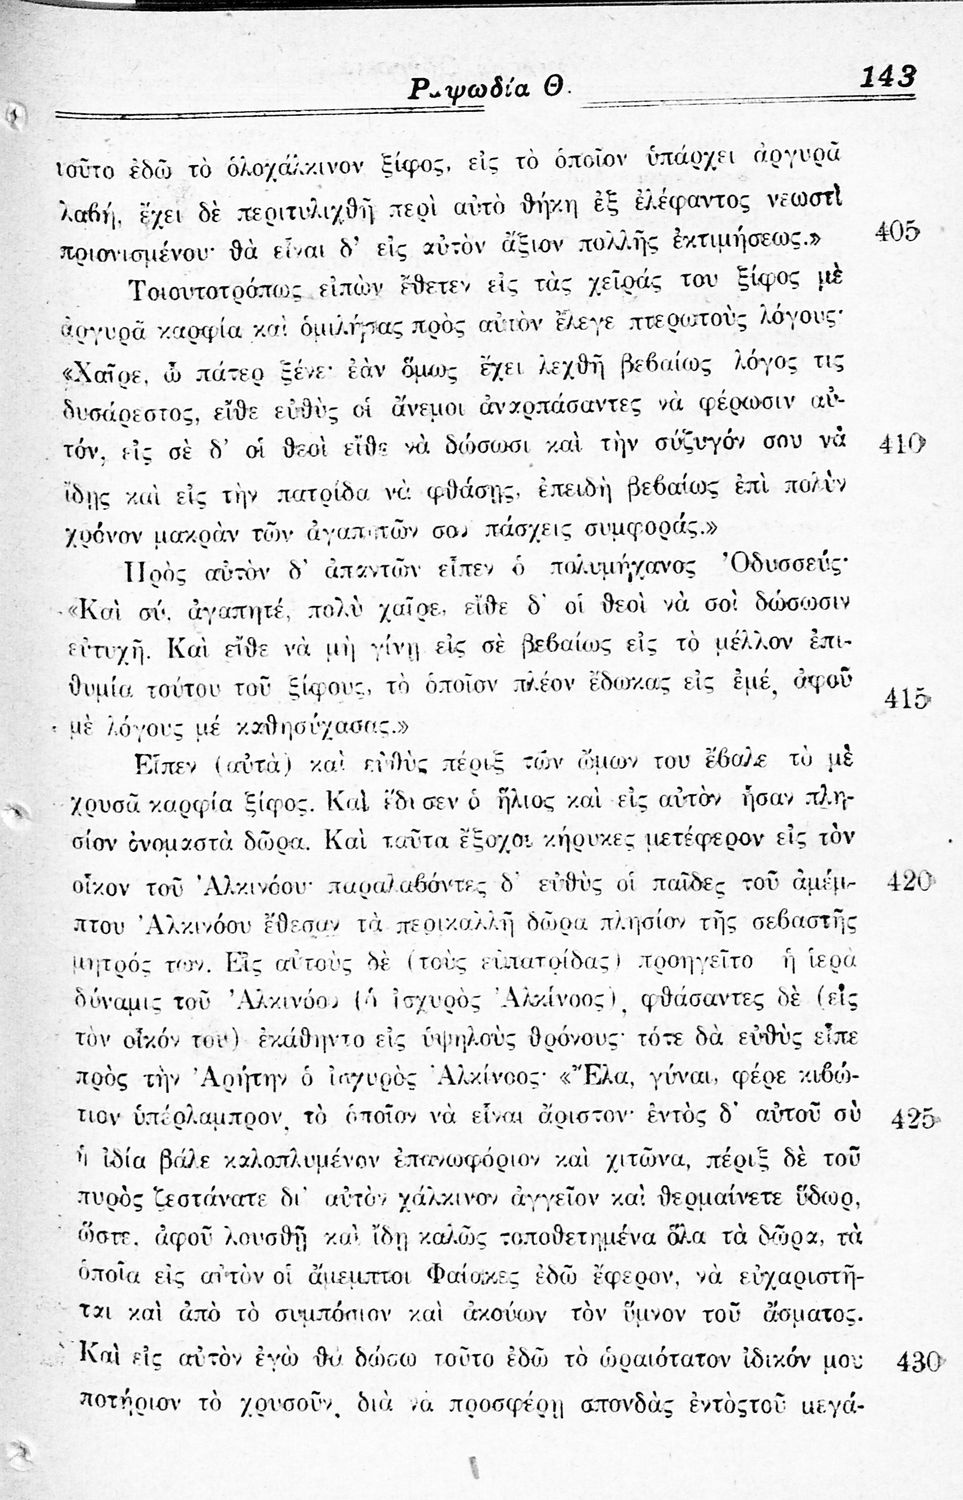 Ραψωδία Θ.
143
τοῦτο ἐδῶ τὸ ὁλοχάλκινον ξίφος, εἰς τὸ ὁποῖον ὑπάρχει ἀργυρᾶ
λαβή, ἔχει δὲ περιτυλιχθῆ περὶ αὐτὸ θήκη ἐξ ἐλέφαντος νεωστὶ
πριονισμένου· θὰ εἶναι δ' εἰς αὐτὸν ἄξιον πολλῆς ἐκτιμήσεως.»
405
Τοιουτοτρόπως εἰπὼν ἔθετεν εἰς τὰς χεῖράς του ξίφος μὲ
ἀργυρᾶ καρφία καὶ ὁμιλήσας πρὸς αὐτὸν ἔλεγε πτερωτοὺς λόγους·
«Χαῖρε, ὦ πάτερ ξένε· ἐὰν ὅμως ἔχει λεχθῆ βεβαίως λόγος τις
δυσάρεστος, εἴθε εὐθὺς οἱ ἄνεμοι ἀναρπάσαντες νὰ φέρωσιν αὐ-
τόν, εἰς σὲ δ' οἱ θεοὶ εἴθε νὰ δώσωσι καὶ τὴν σύζυγόν σου νὰ
410
ἴδῃς καὶ εἰς τὴν πατρίδα νὰ φθάσῃς, ἐπειδὴ βεβαίως ἐπὶ πολὺν
χρόνον μακρὰν τῶν ἀγαπητῶν σου πάσχεις συμφοράς.»
Πρὸς αὐτὸν δ' ἀπαντῶν εἶπεν ὁ πολυμήχανος Ὀδυσσεύς·
«Καὶ σύ, ἀγαπητέ, πολὺ χαῖρε, εἴθε δ' οἱ θεοὶ νὰ σοὶ δώσωσιν
εὐτυχῆ. Καὶ εἴθε νὰ μὴ γίνῃ εἰς σὲ βεβαίως εἰς τὸ μέλλον ἐπι-
θυμία τούτου τοῦ ξίφους, τὸ ὁποῖον πλέον ἔδωκας εἰς ἐμέ, ἀφοῦ
415
μὲ λόγους μέ καθησύχασας.»
Εἶπεν (αὐτὰ) καὶ εὐθὺς πέριξ τῶν ὤμων του ἔβαλε τὸ μὲ
χρυσᾶ καρφία ξίφος. Καὶ ἔδυσεν ὁ ἥλιος καὶ εἰς αὐτὸν ἦσαν πλη-
σίον ὀνομαστὰ δῶρα. Καὶ ταῦτα ἔξοχοι κήρυκες μετέφερον εἰς τὸν
οἶκον τοῦ Ἀλκινόου· παραλαβόντες δ' εὐθὺς οἱ παῖδες τοῦ ἀμέμ-
420
πτου Ἀλκινόου ἔθεσαν τὰ περικαλλῆ δῶρα πλησίον τῆς σεβαστῆς
μητρός των. Εἰς αὐτοὺς δὲ (τοὺς εὐπατρίδας) προηγεῖτο ἡ ἱερὰ
δύναμις τοῦ Ἀλκινόου (ὁ ἰσχυρὸς Ἀλκίνοος), φθάσαντες δὲ (εἰς
τὸν οἶκόν του) ἐκάθηντο εἰς ὑψηλοὺς θρόνους· τότε δὰ εὐθὺς εἶπε
πρὸς τὴν Ἀρήτην ὁ ἰσχυρὸς Ἀλκίνοος· «Ἔλα, γύναι, φέρε κιβώ-
τιον ὑπέρλαμπρον, τὸ ὁποῖον νὰ εἶναι ἄριστον· ἐντὸς δ' αὐτοῦ σὺ
425
ἡ ἰδία βάλε καλοπλυμένον ἐπανωφόριον καὶ χιτῶνα, πέριξ δὲ τοῦ
πυρὸς ζεστάνατε δι' αὐτὸν χάλκινον ἀγγεῖον καὶ θερμαίνετε ὕδωρ,
ὥστε, ἀφοῦ λουσθῇ καὶ ἴδῃ καλῶς τοποθετημένα ὅλα τὰ δῶρα, τὰ
ὁποῖα εἰς αὐτὸν οἱ ἄμεμπτοι Φαίακες ἐδῶ ἔφερον, νὰ εὐχαριστῆ-
ται καὶ ἀπὸ τὸ συμπόσιον καὶ ἀκούων τὸν ὕμνον τοῦ ἄσματος.
Καὶ εἰς αὐτὸν ἐγὼ θὰ δώσω τοῦτο ἐδῶ τὸ ὡραιότατον ἰδικόν μου
430
ποτήριον τὸ χρυσοῦν, διὰ νὰ προσφέρῃ σπονδὰς ἐντὸςτοῦ μεγά-